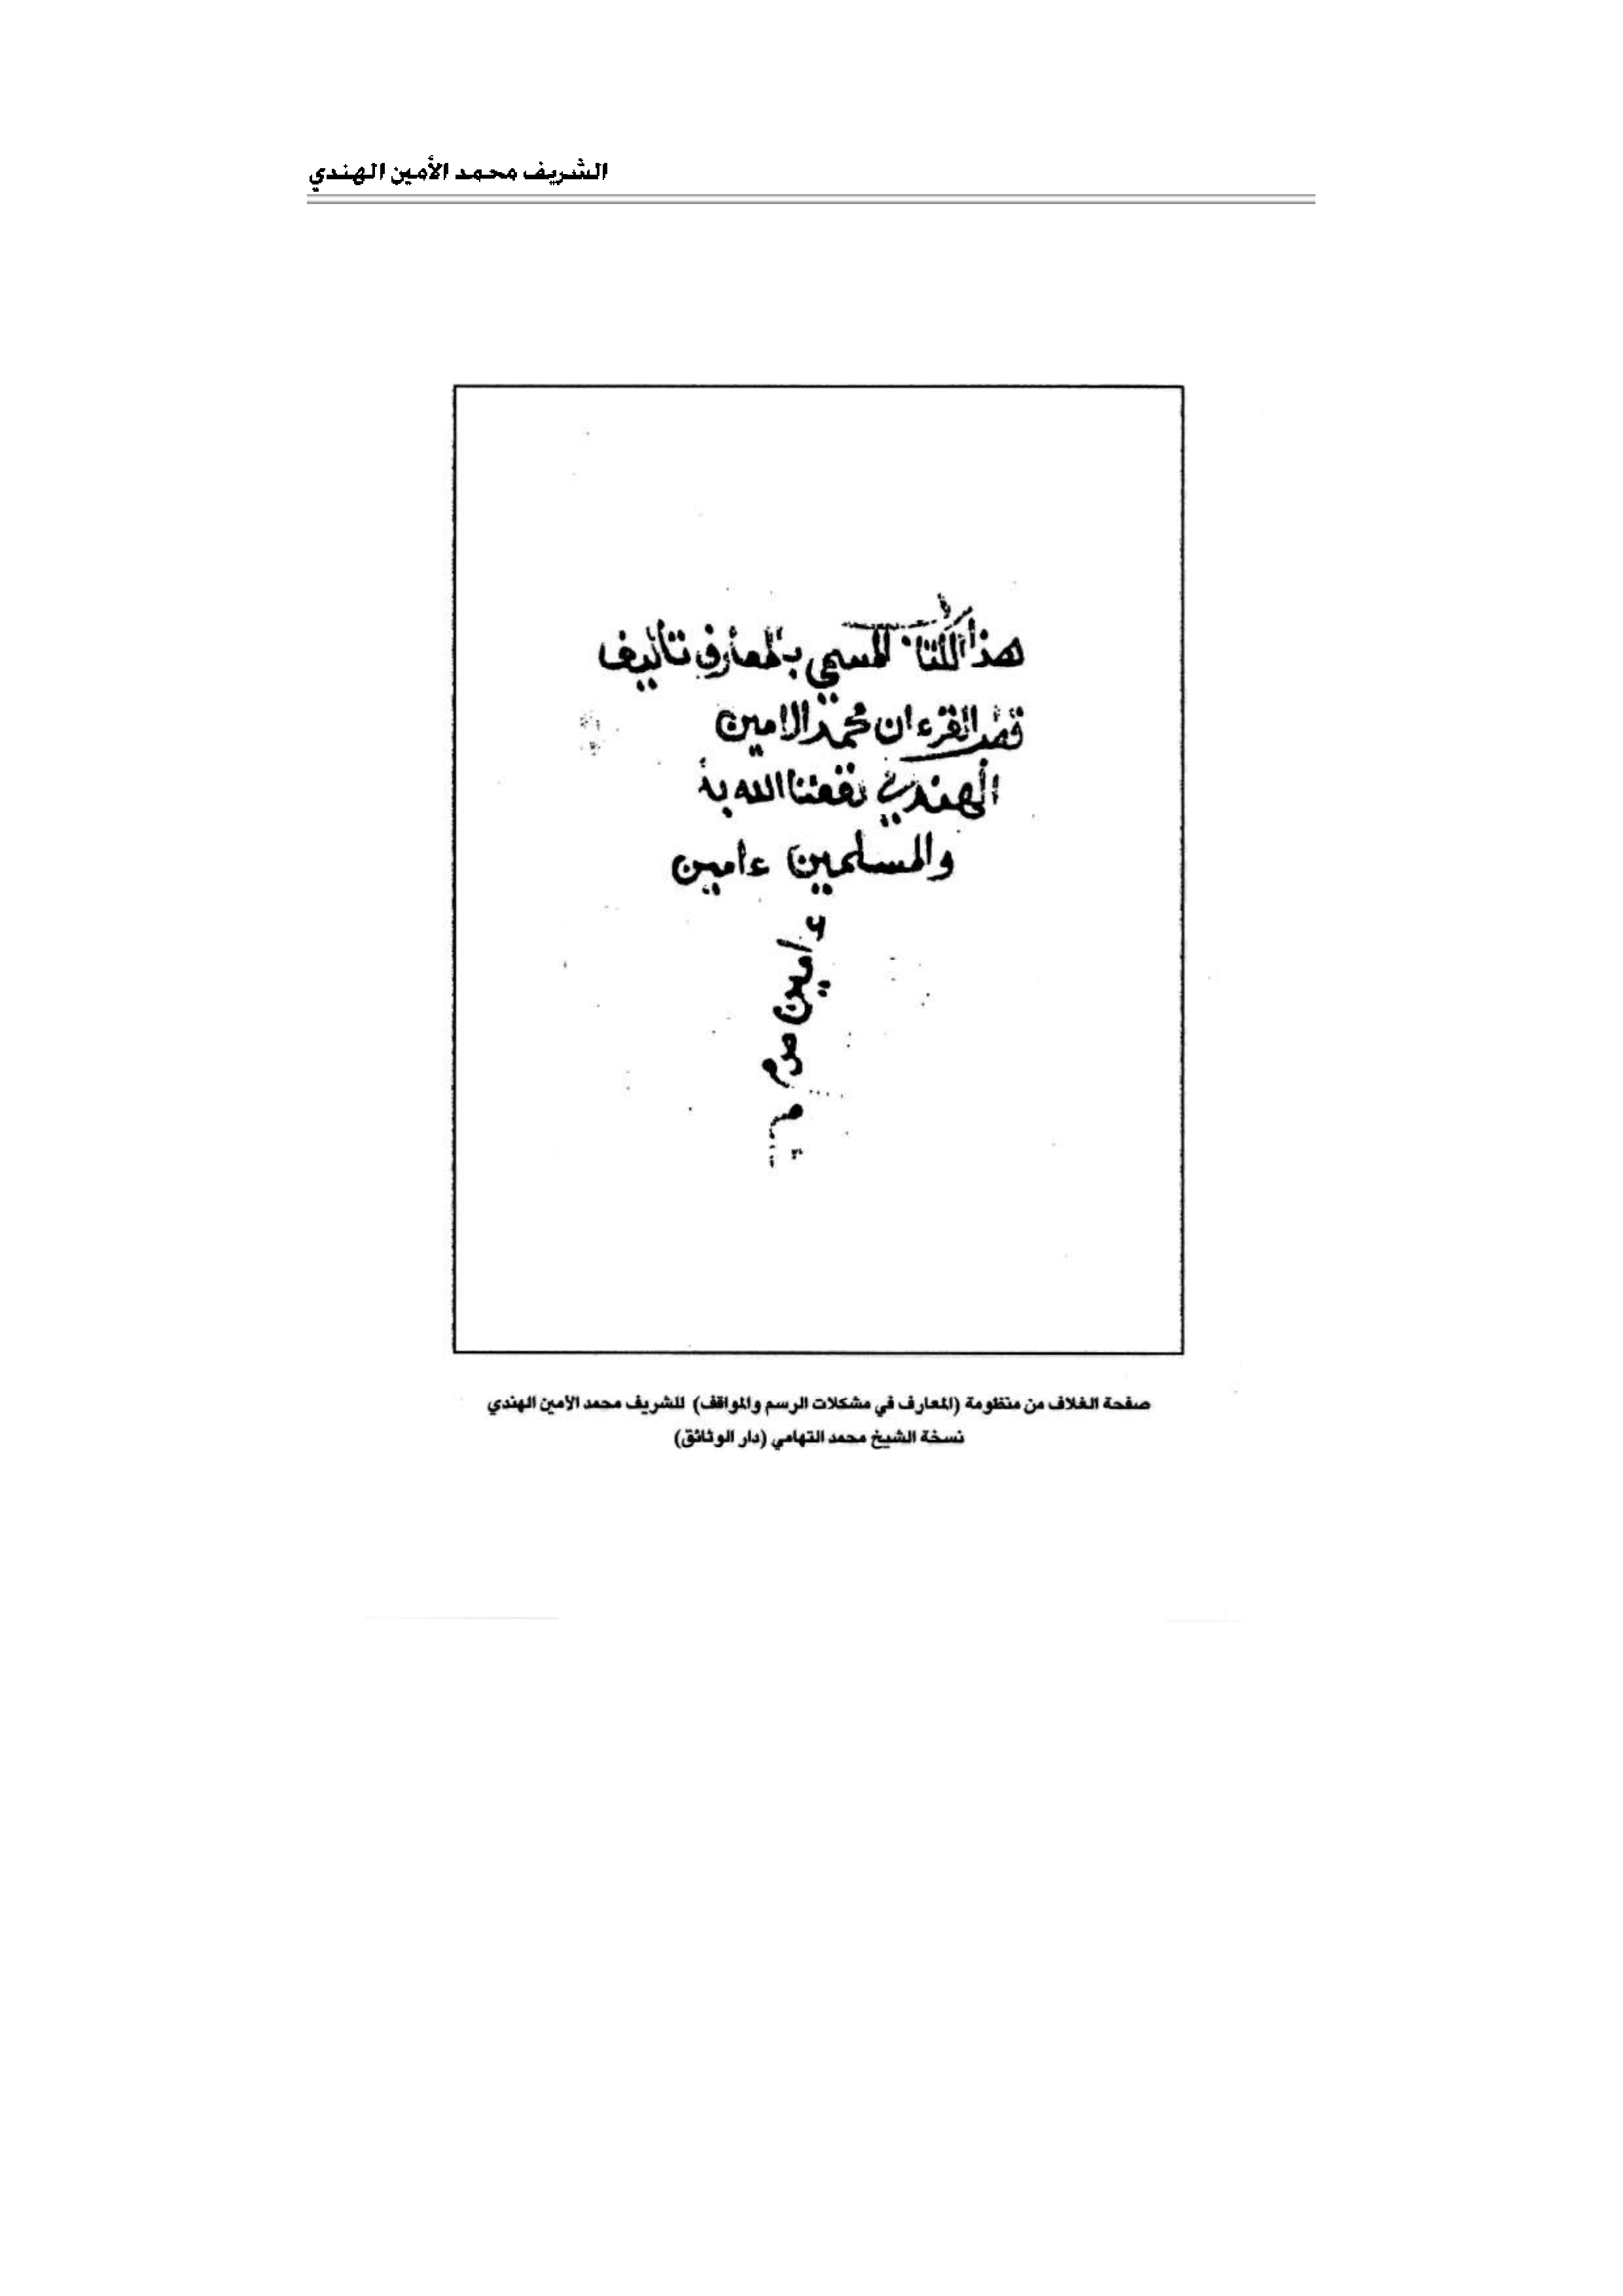 الشريف محمد الأمين الهندي
هذا الكتاب المسمي بالمعارف تأليف
القرءان محمد الامين
الهندي نفعنا الله به
والمسلمين ءامين
ءامين
صفحة الغلاف من منظومة (المعارف في مشكلات الرسم والمواقف) للشريف محمد الأمين الهندي
نسخة الشيخ محمد التهامي (دار الوثائق)